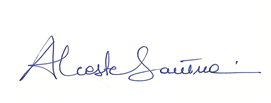 Alceste Santini